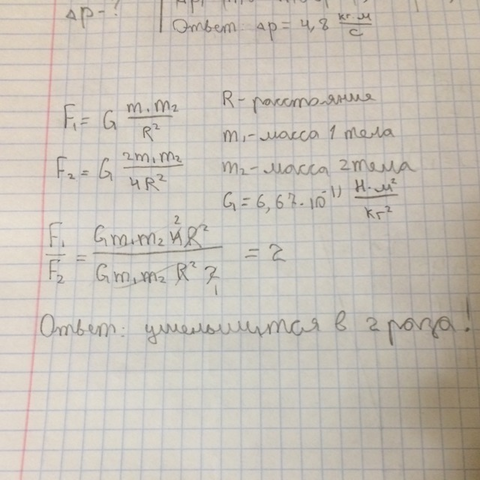 Δp-?
Ответ: Δp = 4,8 кг·м/с
F₁ = G m₁m₂/R²
R - расстояние
m₁ - масса 1 тела
F₂ = G 2m₁m₂/4R²
m₂ - масса 2 тела
G = 6,67·10⁻¹¹ Н·м²/кг²
F₁/F₂ = Gm₁m₂ 4R²/Gm₁m₂ R² 2 = 2
Ответ: уменьшится в 2 раза!